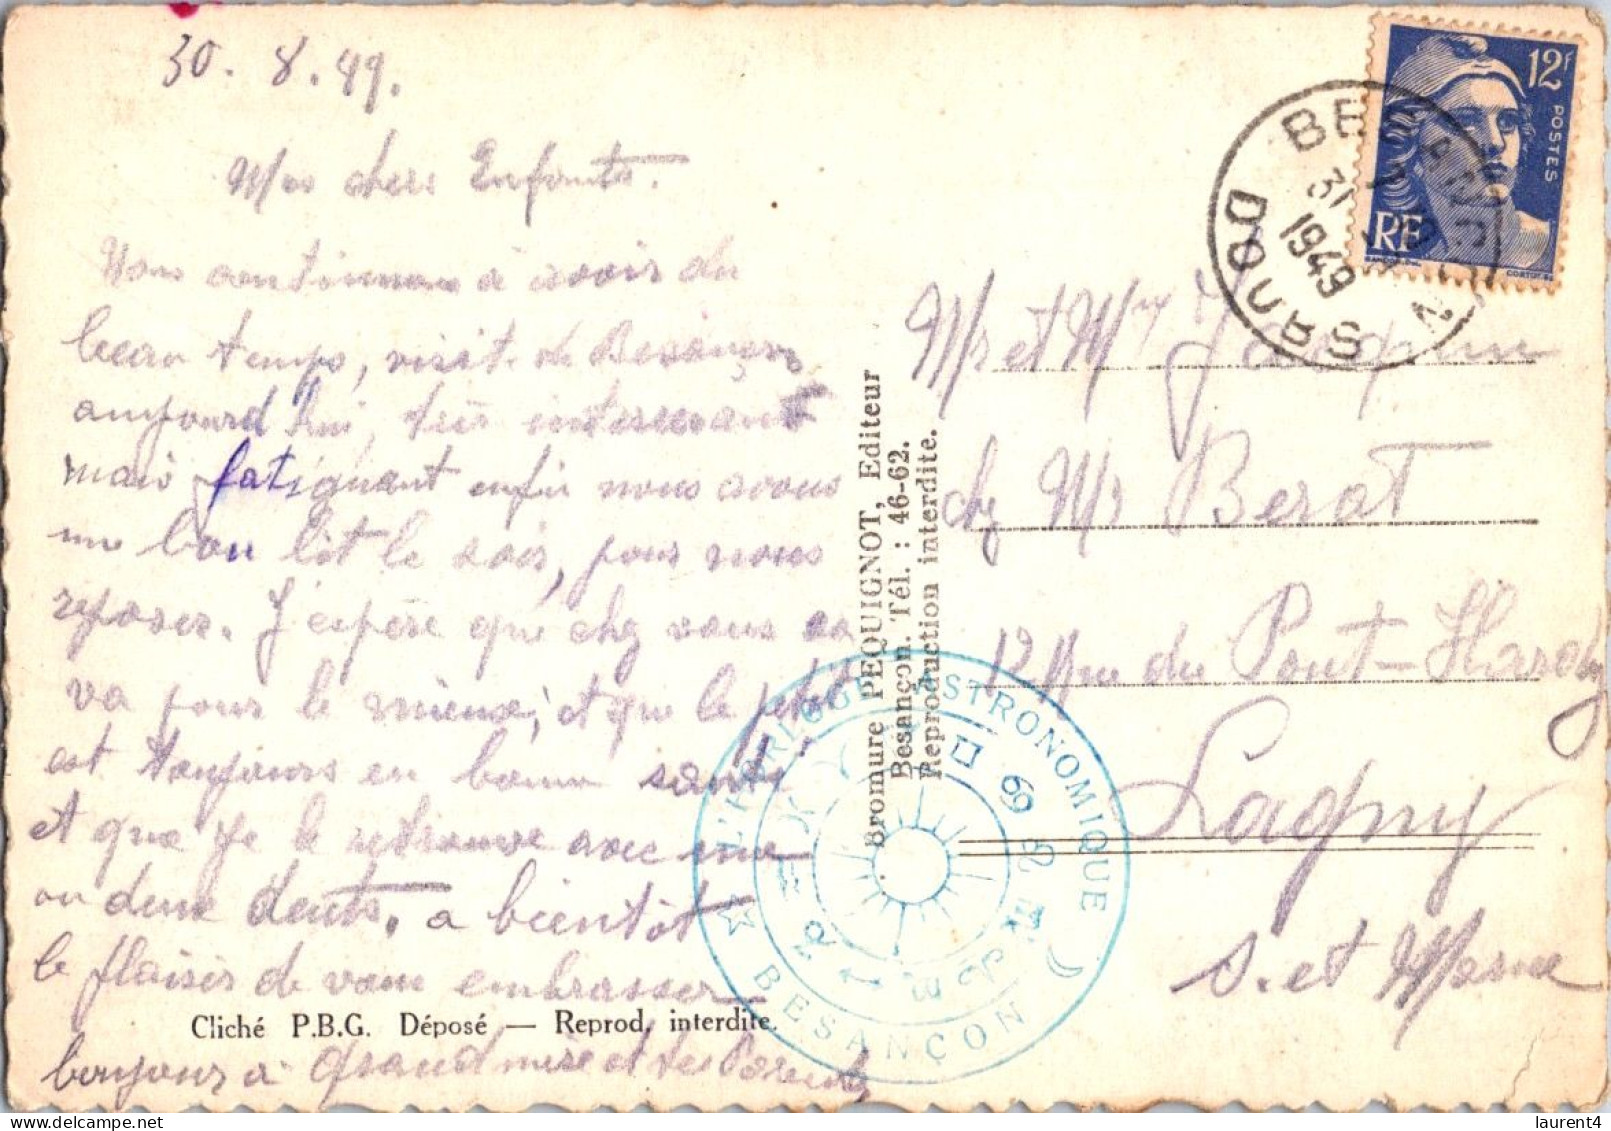 30.8.49.
Mes chers Enfants.
Nous continuons à avoir du
beau temps, visite de Besançon
aujourd'hui, très intéressant
mais fatiguant enfin nous avons
un bon lit le soir, pour nous
reposer. J'espère que chez vous ça
va pour le mieux, et que le petit
est toujours en bonne santé
et que je le retrouve avec une
ou deux dents. a bientôt
le plaisir de vous embrasser
bonjour à grand mère et tes Parents
Cliché P.B.G. Déposé — Reprod. interdite.
Bromure PEQUIGNOT, Editeur
Besançon. Tél. : 46-62.
Reproduction interdite.
L'HORLOGE ASTRONOMIQUE
BESANÇON
12F
POSTES
RF
BESANÇON
31
1949
DOUBS
Mr et Mme Jacquin
chez Mr Berat
12 Rue du Pont-Hardy
Lagny
S. et Marne
laurent4